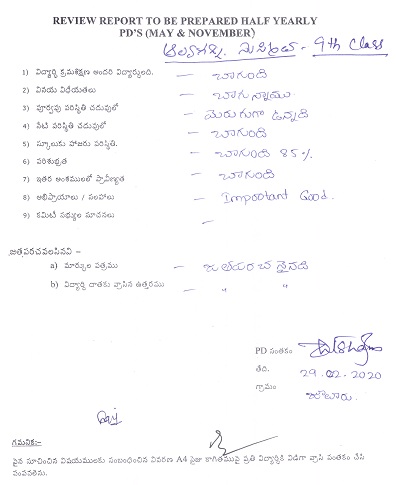 REVIEW REPORT TO BE PREPARED HALF YEARLY
PD'S (MAY & NOVEMBER)
9th Class
1) విద్యార్థి క్రమశిక్షణ అందరి విద్యార్థులది. – బాగుంది
2) వినయ విధేయతలు – బాగున్నాయి
3) పూర్వపు పరిస్థితి చదువులో – మెరుగుగా ఉన్నది
4) నేటి పరిస్థితి చదువులో – బాగుంది
5) స్కూలుకు హాజరు పరిస్థితి. – బాగుంది 85%
6) పరిశుభ్రత – బాగుంది
7) ఇతర అంశములలో ప్రావీణ్యత – బాగుంది
8) అభిప్రాయాలు / సలహాలు – Important Good.
9) కమిటి సభ్యుల సూచనలు –
జతపరచవలసినవి –
a) మార్కుల పత్రము – జతపరచనైనది
b) విద్యార్థి దాతకు వ్రాసిన ఉత్తరము – " "
PD సంతకం
తేది. 29.02.2020
గ్రామం
గమనిక:-
పైన సూచించిన విషయములకు సంబంధించిన వివరణ A4 సైజు కాగితముపై ప్రతి విద్యార్థికి విడిగా వ్రాసి సంతకం చేసి
పంపవలెను.